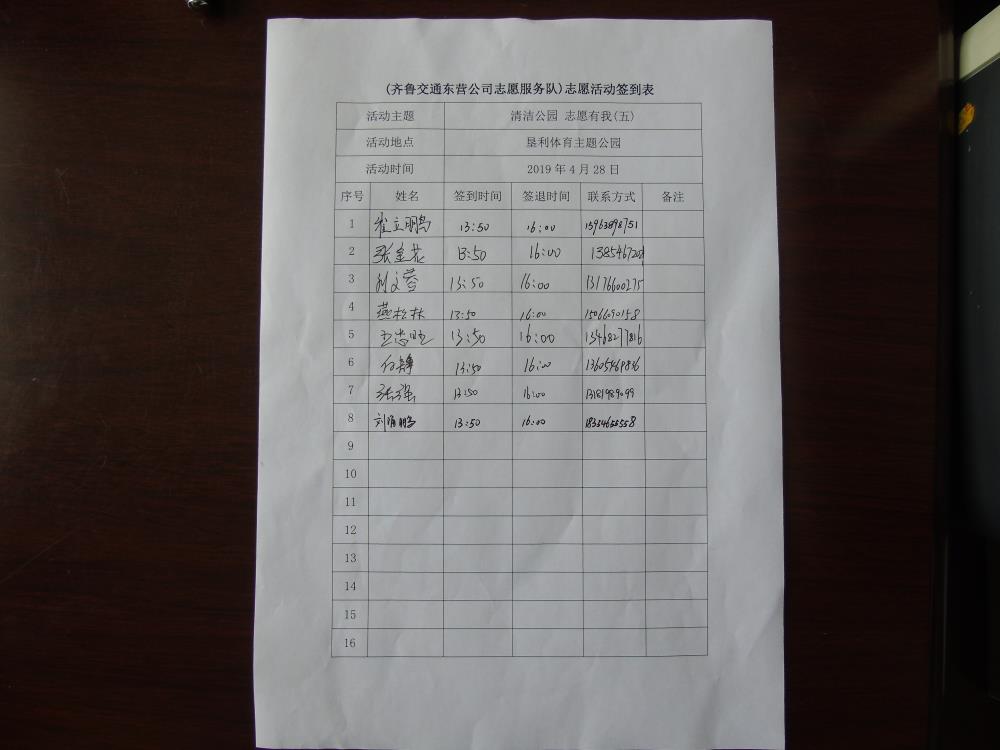 (齐鲁交通东营公司志愿服务队)志愿活动签到表
活动主题 清洁公园 志愿有我(五)
活动地点 垦利体育主题公园
活动时间 2019年4月28日
序号 姓名 签到时间 签退时间 联系方式 备注
1 崔立鹏 13:50 16:00 15963898751
2 张金花 13:50 16:00
3 刘文蓉 13:50 16:00 13176600275
4 燕松林 13:50 16:00
5 王志旺 13:50 16:00 13468277816
6 13:50 16:00 13605469836
7 张强 13:50 16:00 13181989099
8 13:50 16:00
9
10
11
12
13
14
15
16